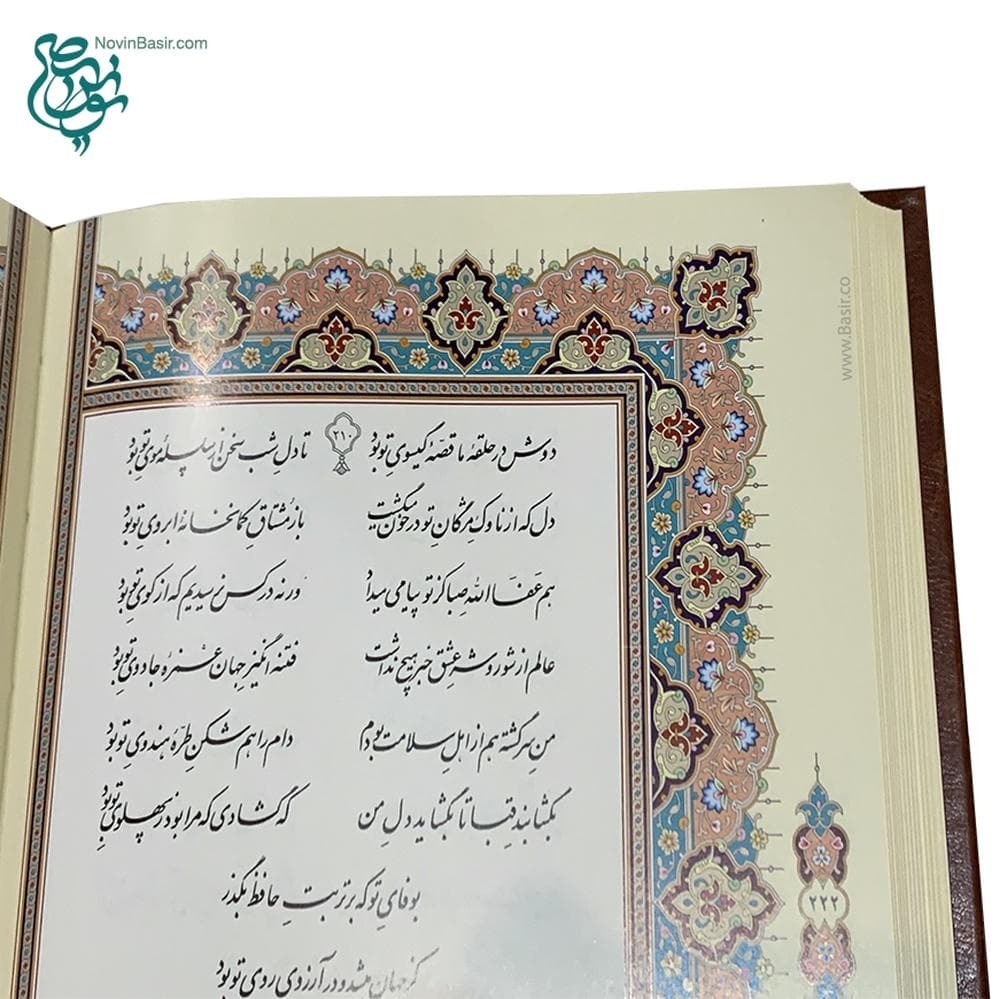 NovinBasir.com
www.Basir.co
۲۱۰
دوش در حلقهٔ ما قصّهٔ گیسوی تو بود تا دلِ شب سخن از سلسلهٔ موی تو بود
دل که از ناوکِ مژگانِ تو در خون میگشت باز مشتاقِ کمانخانهٔ ابروی تو بود
هم عَفَا اللّه صبا کز تو پیامی میداد ورنه در کس نرسیدیم که از کوی تو بود
عالم از شور و شرِ عشق خبر هیچ نداشت فتنه انگیزِ جهان غمزهٔ جادوی تو بود
منِ سرگشته هم از اهلِ سلامت بودم دامِ راهم شکنِ طرّهٔ هندوی تو بود
بگشا بندِ قبا تا بگشاید دلِ من که گشادی که مرا بود ز پهلوی تو بود
بوفای تو که بر تربتِ حافظ بگذر
کز جهان میشد و در آرزوی روی تو بود
۲۲۲